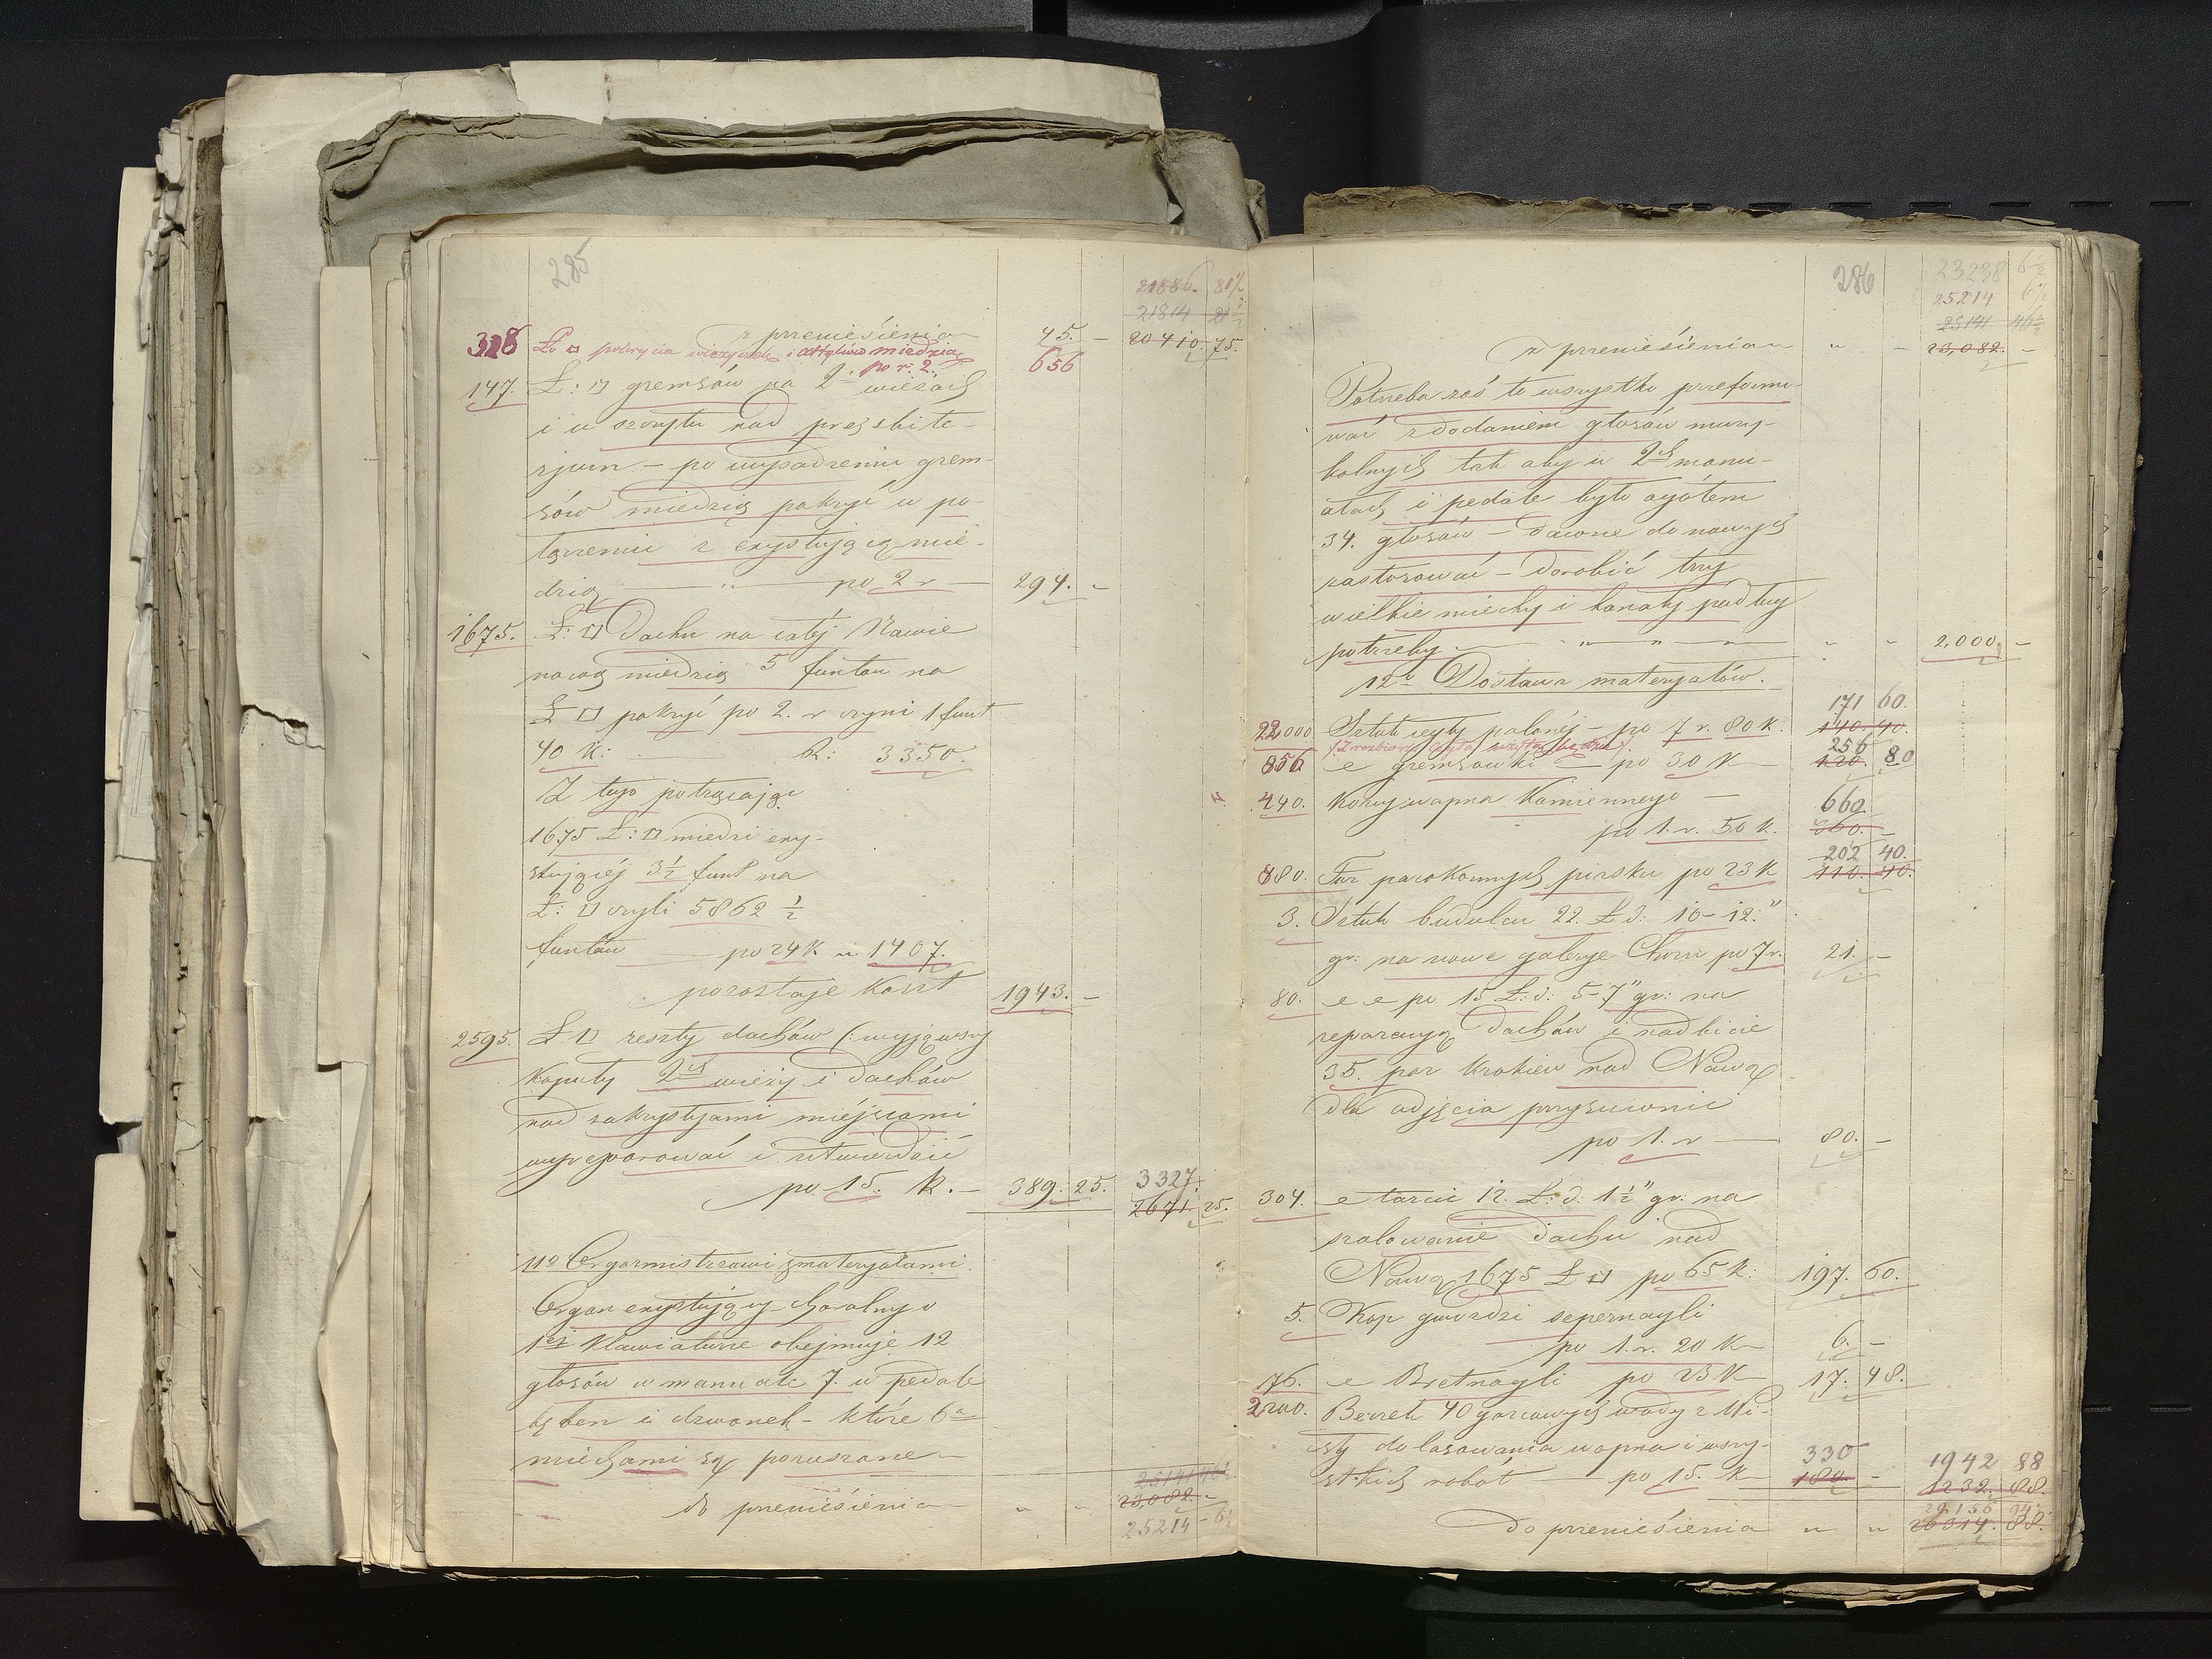 285
21886. 81½
21814
z przeniesienia 45. – 20410. 75.
328 Ł: □ pokrycia wieżyczek i attyków miedzią po r. 2. 656
147. Ł: □ gremsów na 2 wieżach
i u szczytu nad presbite-
rjum – po wysadzeniu grem-
sów miedzią pokryć w po-
łączeniu z exystującą mie-
dzią " po 2 r – 294. –
1675. Ł: □ Dachu na całéj Nawie
nową miedzią 5 funtów na
Ł □ pokryć po 2. r czyni 1 funt
40 K: R: 3350.
Z tego potrącając
1675 Ł: □ miedzi exy-
stującéj 3½ funt na
Ł: □ czyli 5862 ½
funtów po 24 K " 1407.
pozostaje koszt 1943. –
2595. Ł □ reszty dachów (: wyjąwszy
kopuły 2ch wieży i dachów
nad zakrystjami miéjscami
wyreparować i utwierdzić
po 15. K. – 389. 25. 3327.
2671. 25.
11o Organmistrzowi z materyałami.
Organ exystujący choralny o
1éj klawiaturze obejmuje 12
głosów w manuale 7. w pedale
bęben i dzwonek – które 6a
miechami są poruszane –
25141 46½
do przeniesienia " " 23,082. –
25214 – 6½
286
23238 6½
25214 6½
25141 46½
z przeniesienia " – 23,082. –
Potrzeba zaś to wszystko przeformo-
wać z dodaniem głosów muzy-
kalnych tak aby w 2ch manu-
ałach i pedale było ogółem
34. głosów – dawne do nowych
zastosować – dorobić trzy
wielkie miechy i kanały podług
potrzeby – " " " " " 2,000. –
12o Dostawa materyałów.
171 60.
22000 Sztuk cegły palonéj – po 7 r. 80 K. 140. 40.
256
856 e gremsówki – po 30 K – 120. 80
440. Korcy wapna kamiennego – 660.
po 1. r. 50 K. 360. –
202 40.
880. Fur parokonnych piasku po 23 K 110. 40.
3. Sztuk budulcu 22. Ł d: 10–12."
gr: na nowe galerye Chóru po 7 r. 21. –
80. e e po 15 Ł: d: 5–7" gr: na
reparacyą dachów i nadbicie
35. par krokiew nad Nawą
dla odjęcia przyzwonic
po 1. r – 80. –
304. e tarcic 12. Ł: d: 1½" gr. na
szalowanie dachu nad
Nawą 1675 Ł □ po 65 K: 197. 60.
5. Kop gwoździ szpernagli
po 1. r. 20 K – 6. –
76. e Bretnagli po 23 K – 17. 48.
2200. Beczek 40 garcowych wody z Wi-
sły do lasowania wapna i wszy- 330
stkich robót – po 15. K – 180. – 1942 88
1232. 88.
29,156 94½
do przeniesienia " " 26314. 88.